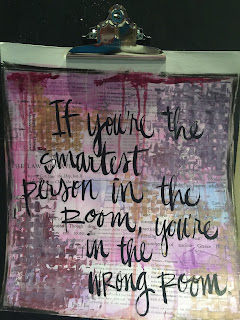 If you're the
smartest
person in the
room, you're
in the
wrong room